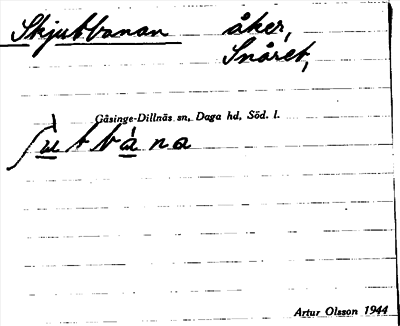 Skjutbanan åker,
Snåret,
Gåsinge-Dillnäs sn, Daga hd, Söd. l.
ʃùtbána
Artur Olsson 1944